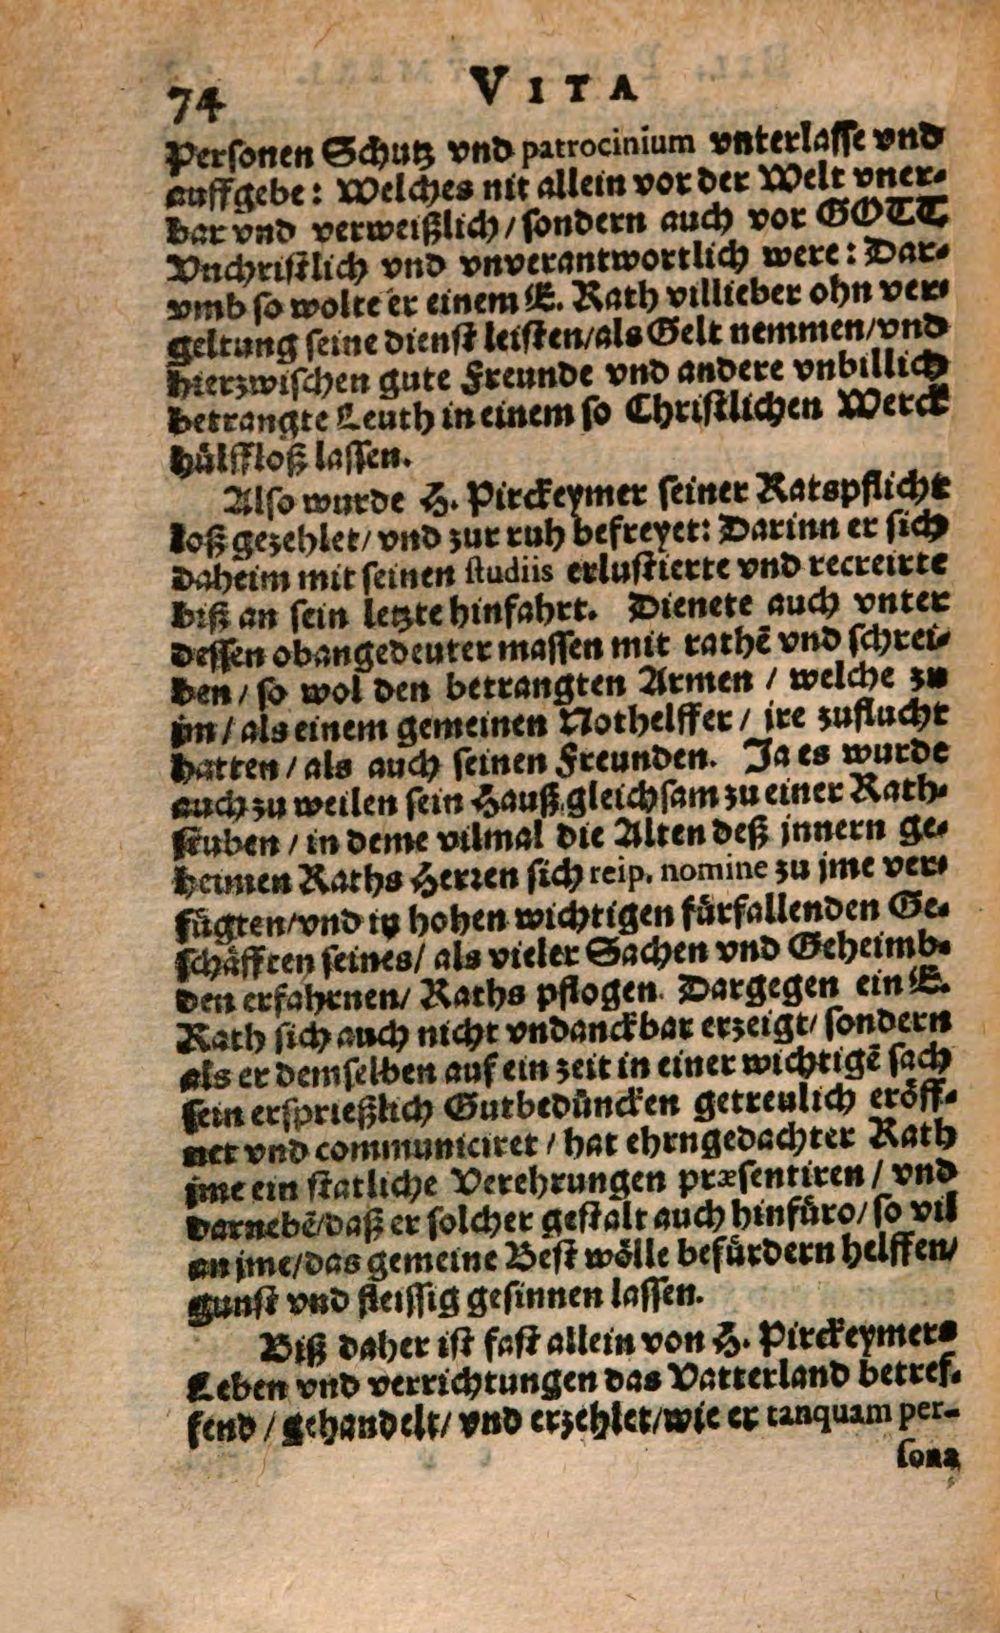 74 VITA
Personen Schutz vnd patrocinium vnterlasse vnd
auffgebe: Welches nit allein vor der Welt vner-
bar vnd verweißlich / sondern auch vor GOTT
Vnchristlich vnd vnverantwortlich were: Dar-
vmb so wolte er einem E. Rath villieber ohn ver-
geltung seine dienst leisten/als Gelt nemmen/vnd
hierzwischen gute Freunde vnd andere vnbillich
betrangte Leuth in einem so Christlichen Werck
hülffloß lassen.
Also wurde H. Pirckeymer seiner Ratspflicht
loß gezehlet/ vnd zur ruh befreyet: Darinn er sich
daheim mit seinen studiis erlustierte vnd recreirte
biß an sein letzte hinfahrt. Dienete auch vnter
dessen obangedeuter massen mit rathē vnd schrei-
ben / so wol den betrangten Armen / welche zu
jm / als einem gemeinen Nothelffer / jre zuflucht
hatten / als auch seinen Freunden. Ja es wurde
auch zu weilen sein Hauß gleichsam zu einer Rath-
stuben / in deme vilmal die Alten deß jnnern ge-
heimen Raths Herren sich reip. nomine zu jme ver-
fügten/vnd in hohen wichtigen fürfallenden Ge-
schäfften seines/ als vieler Sachen vnd Geheimb-
den erfahrnen/ Raths pflogen. Dargegen ein E.
Rath sich auch nicht vndanckbar erzeigt/ sondern
als er demselben auf ein zeit in einer wichtigē sach
sein ersprießlich Gutbedüncken getreulich eröff-
net vnd communiciret / hat ehrngedachter Rath
jme ein statliche Verehrungen præsentiren / vnd
darnebē/daß er solcher gestalt auch hinfüro/ so vil
an jme/das gemeine Best wölle befürdern helffen/
gunst vnd fleissig gesinnen lassen.
Biß daher ist fast allein von H. Pirckeymers
Leben vnd verrichtungen das Vatterland betref-
fend / gehandelt/ vnd erzehlet/wie er tanquam per-
sona